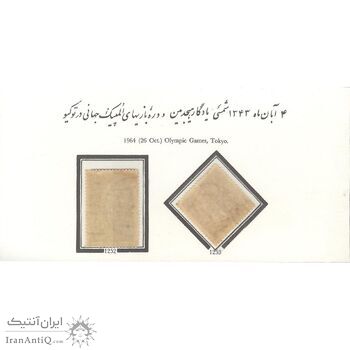 ۴ آبان ماه ۱۳۴۳ شمسی یادگار هیجدهمین دوره بازیهای المپیک جهانی در توکیو
1964 (26 Oct.) Olympic Games, Tokyo.
1252
1253
ایران آنتیک
IranAntiQ.com